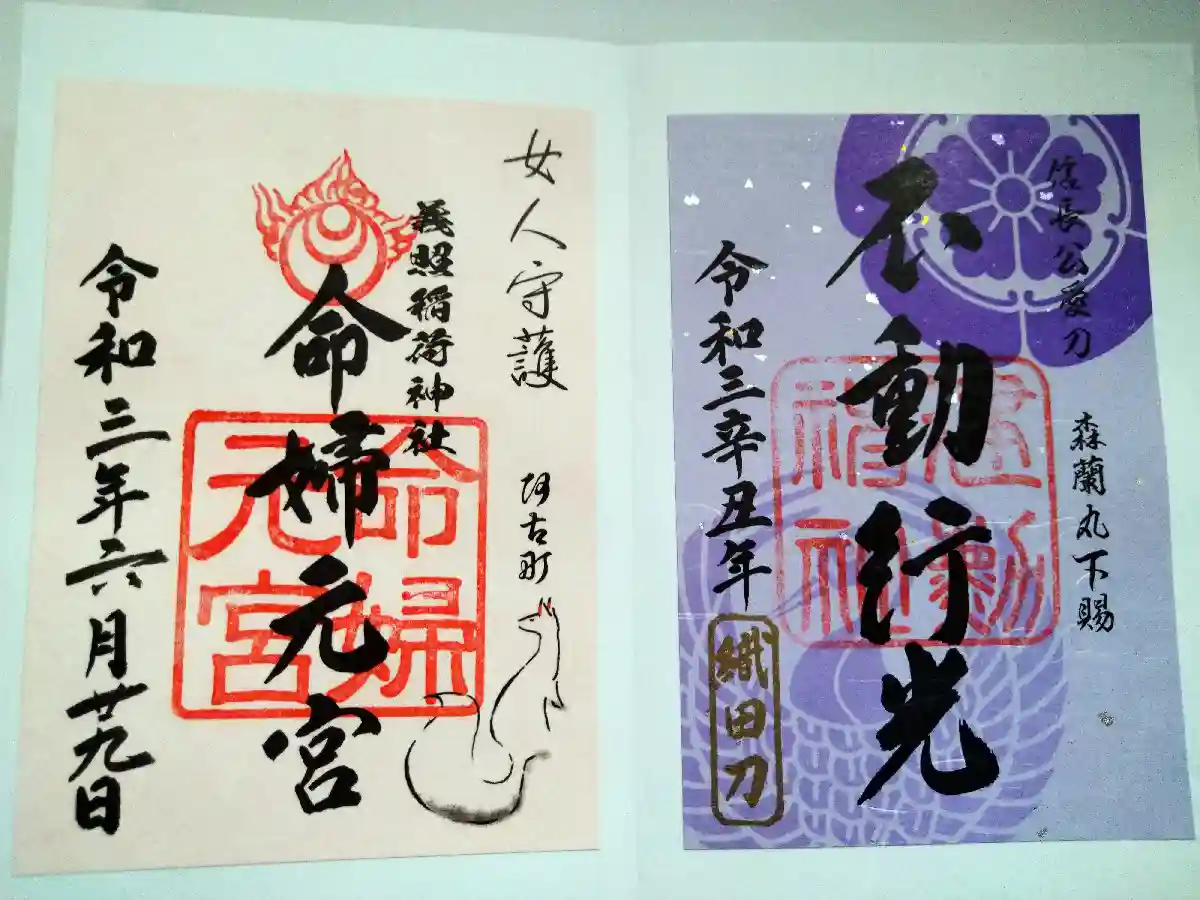 女人守護 阿古町
義照稲荷神社
命婦元宮
命婦元宮
令和三年六月廿九日
信長公愛刀
森蘭丸下賜
不動行光
建勲神社
令和三辛丑年
織田刀